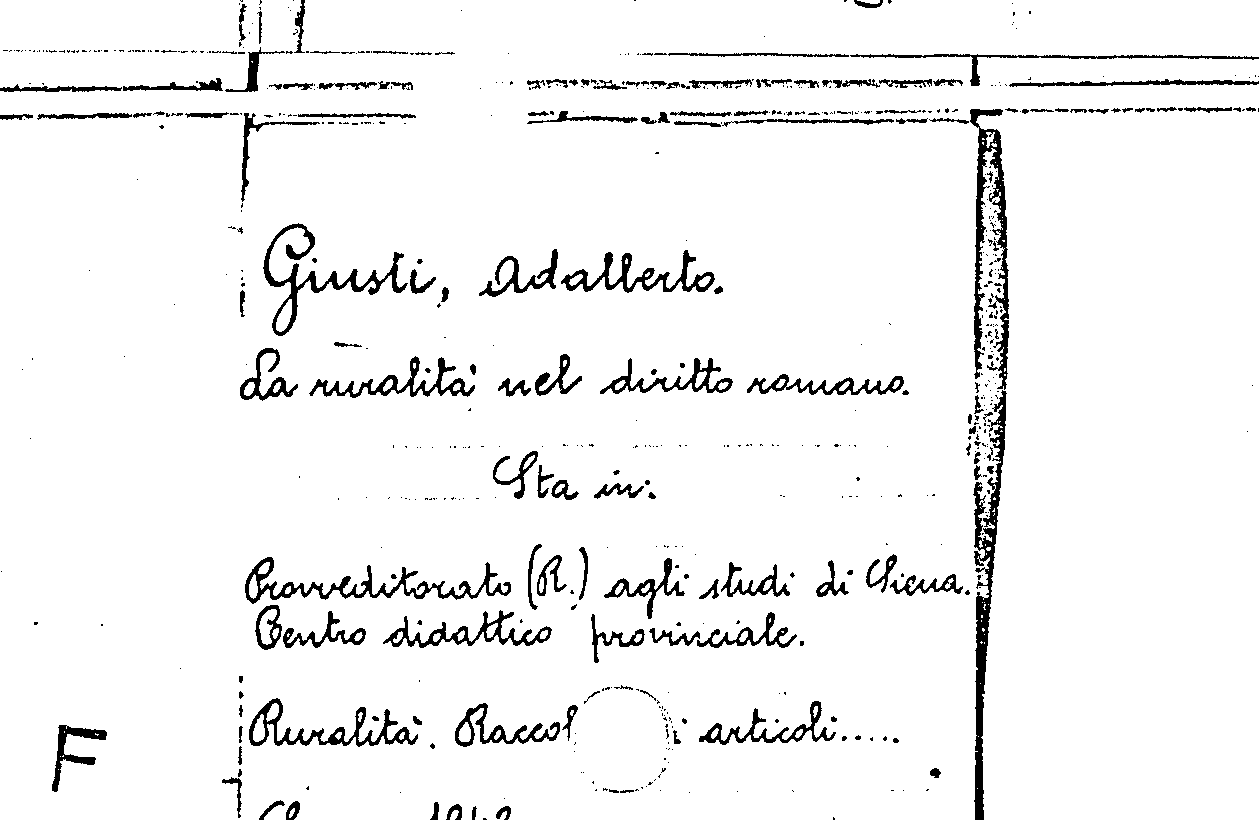 Giusti, Adalberto.
La ruralità nel diritto romano.
Sta in:
Provveditorato (R.) agli studi di Siena.
Centro didattico provinciale.
Ruralità. articoli.....
F